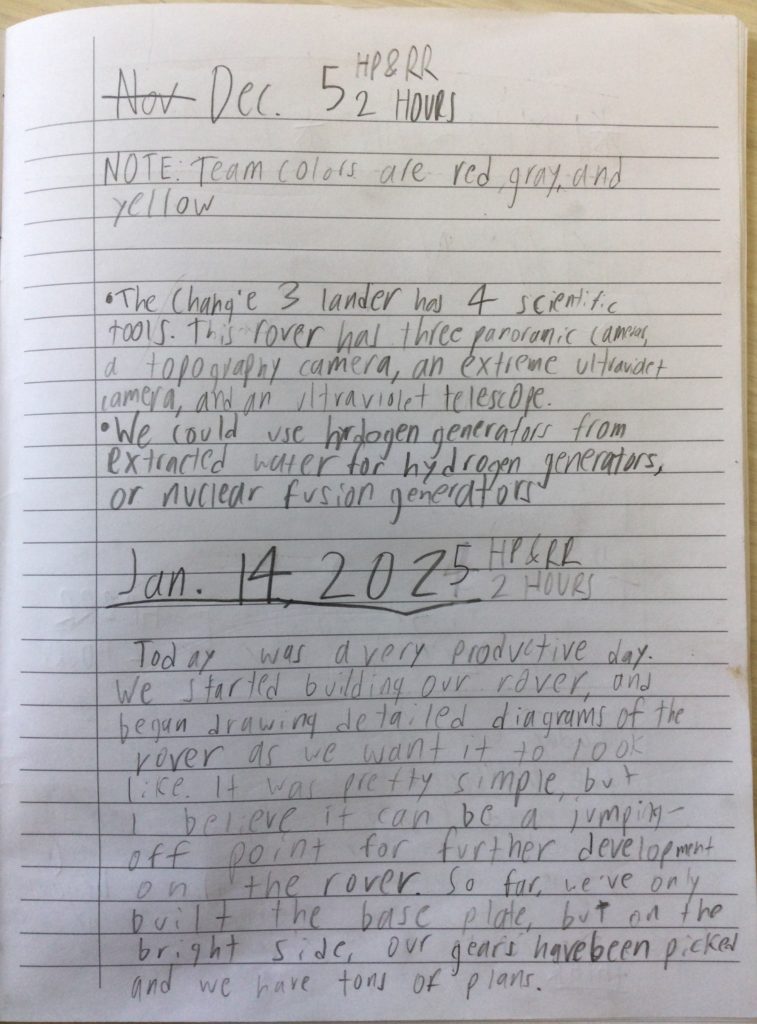 Nov Dec. 5 HP&RR
2 HOURS
NOTE: Team colors are red, gray, and
yellow
•The Chang'e 3 lander has 4 scientific
tools. This rover has three panoramic cameras,
a topography camera, an extreme ultraviolet
camera, and an ultraviolet telescope.
•We could use hrdogen generators from
extracted water for hydrogen generators,
or nuclear fusion generators
Jan. 14, 2025 HP&RR
2 HOURS
Today was a very productive day.
We started building our rover, and
began drawing detailed diagrams of the
rover as we want it to look
like. It was pretty simple, but
I believe it can be a jumping-
off point for further development
on the rover. So far, we've only
built the base plate, but on the
bright side, our gears have been picked
and we have tons of plans.